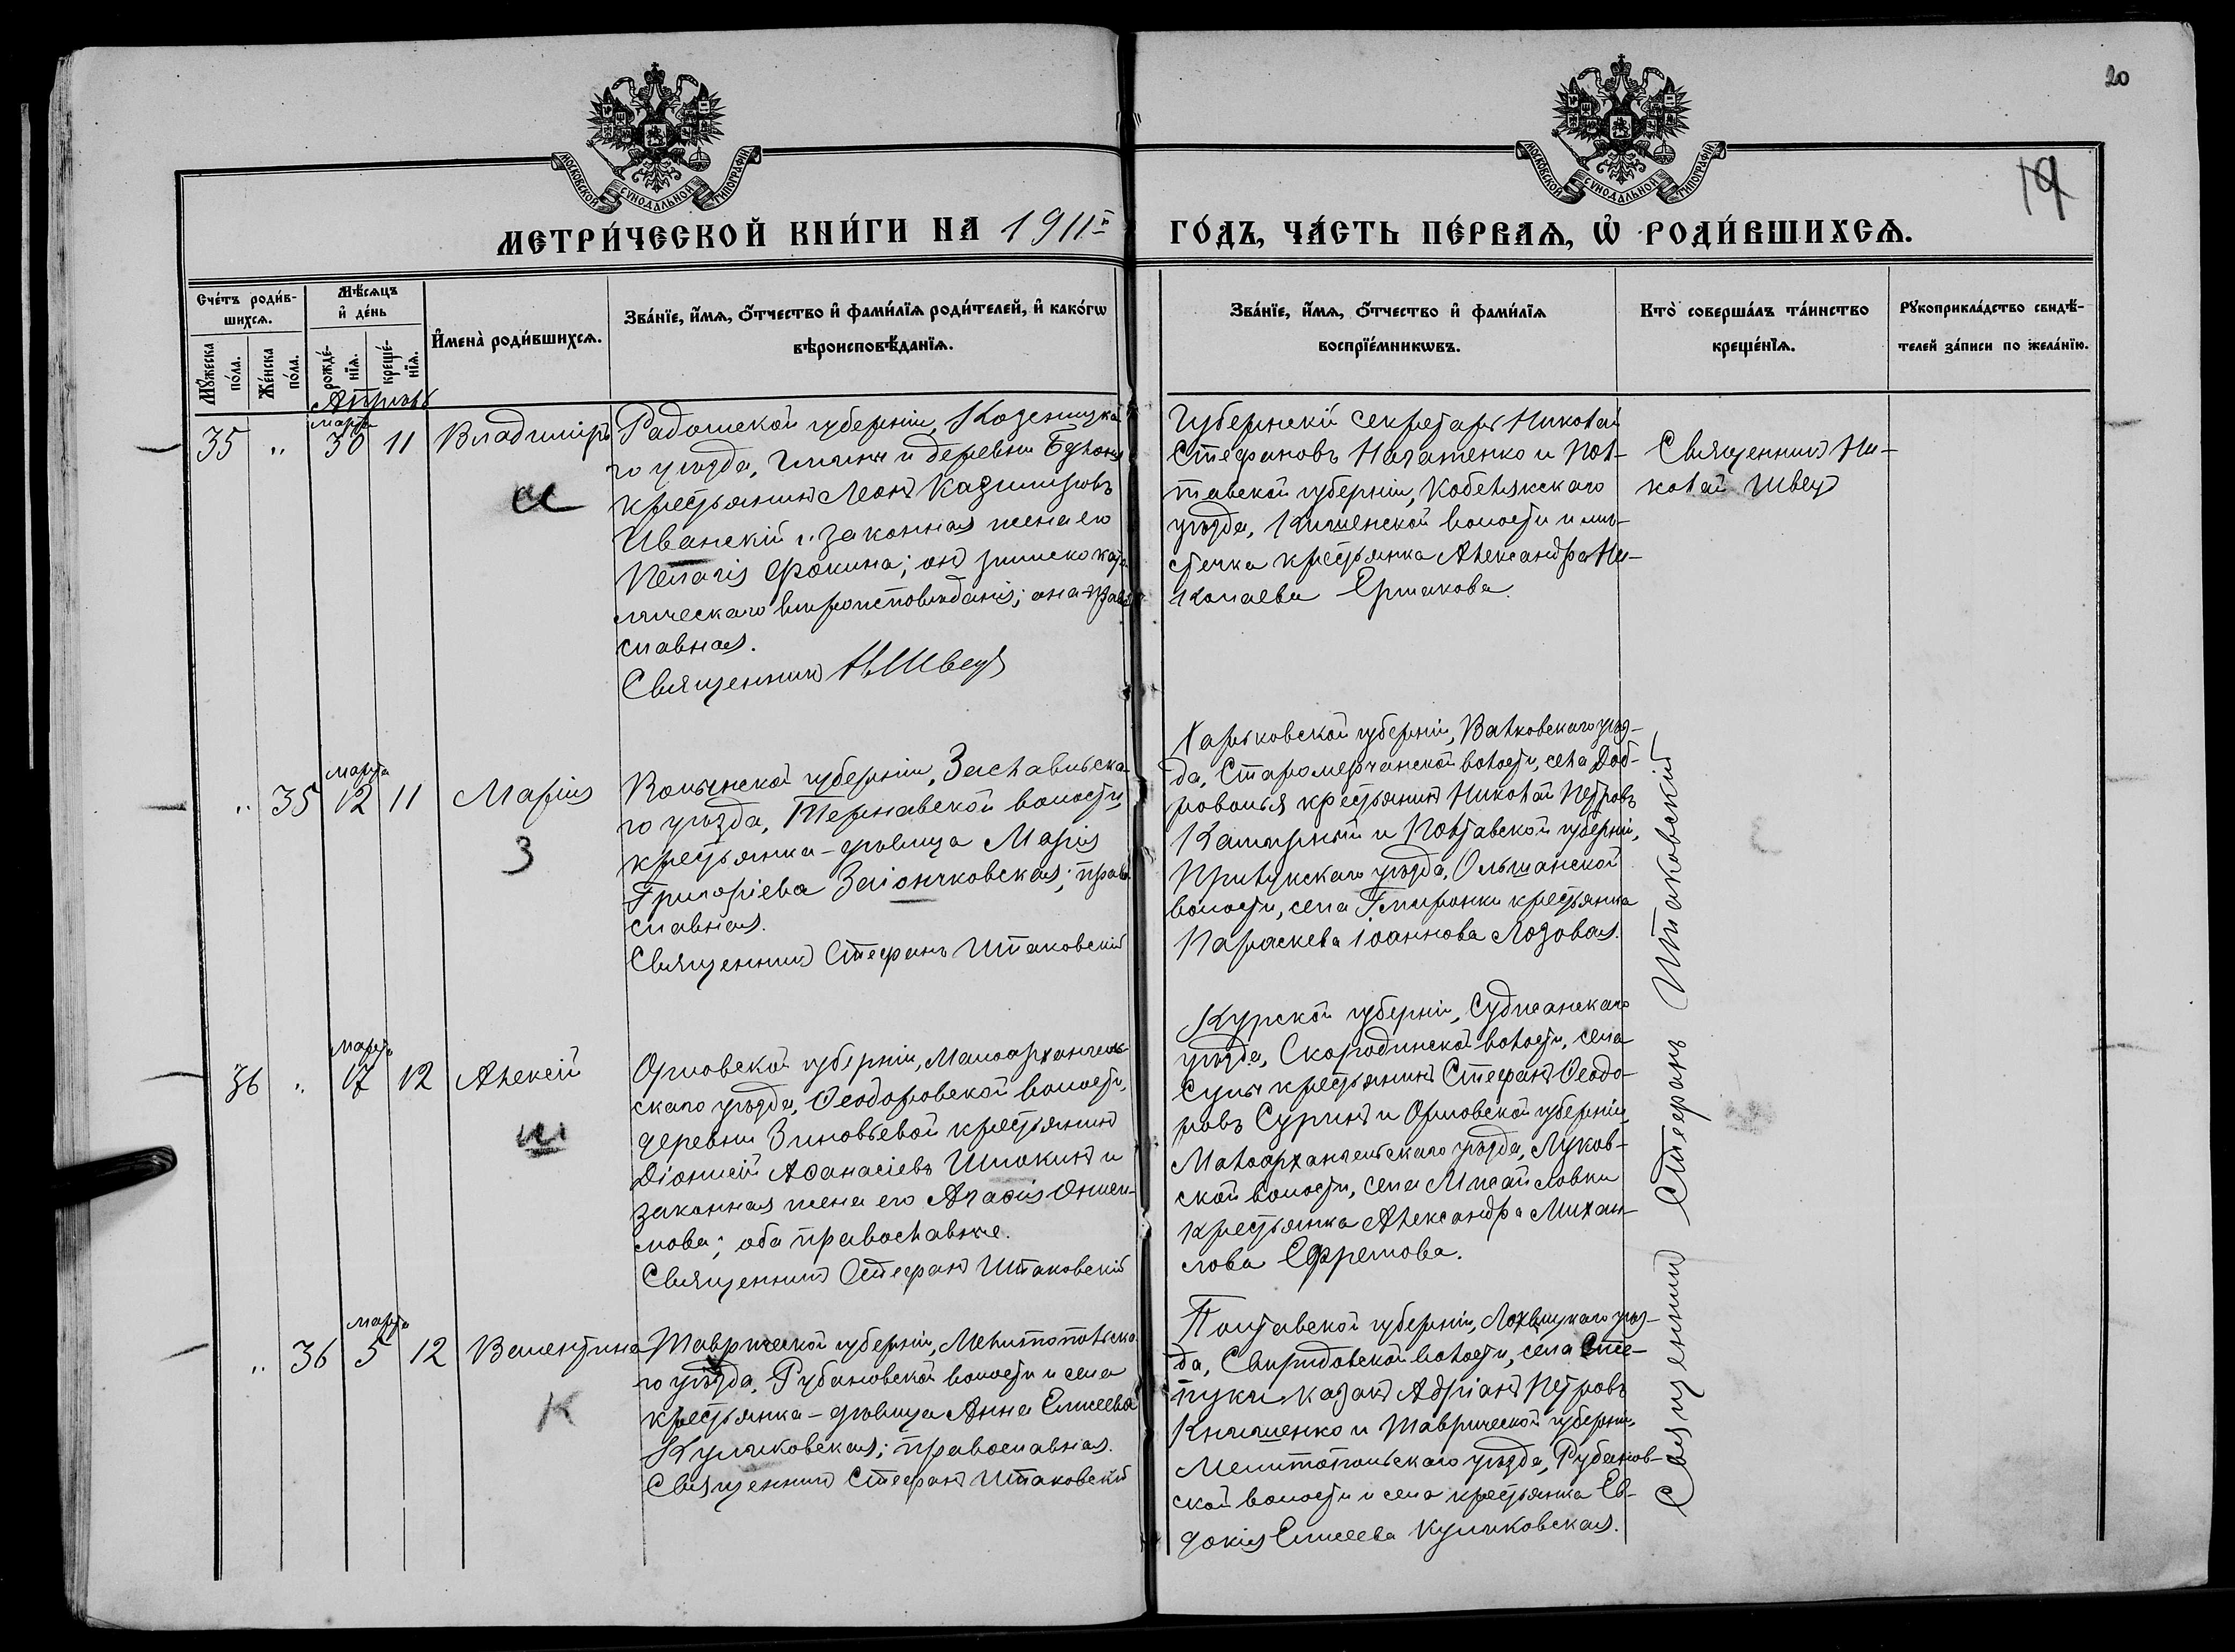 20
19
МОСКОВСКОЙ СѴНОДАЛЬНОЙ ТИПОГРАФІИ
МОСКОВСКОЙ СѴНОДАЛЬНОЙ ТИПОГРАФІИ
МЕТРИ́ЧЕСКОЙ КНИ́ГИ НА 1911й
ГО́ДЪ, ЧА́СТЬ ПЕ́РВАѦ, Ѽ РОДИ́ВШИХСѦ.
Сче́тъ роди́в-
шихсѧ.
Мꙋ́жеска
по́ла.
Же́нска
по́ла.
Мѣ́сѧцъ
и҆ де́нь
рожде́-
нїѧ.
креще́-
нїѧ.
И҆мена̀ роди́вшихсѧ.
Зва́нїе, и҆́мѧ, ѻ҆́тчество и҆ фами́лїѧ роди́телей, и҆ како́гѡ
вѣроисповѣ́данїѧ.
Зва́нїе, и҆́мѧ, ѻ҆́тчество и҆ фами́лїѧ
воспрїе́мникѡвъ.
Кто̀ соверша́лъ та́инство
креще́нїѧ.
Рꙋкоприкла́дство свидѣ́-
телей за́писи по жела́нїю.
Апрѣль
марта
35 " 30 11 Владиміръ
и
Радомской губерніи, Козеницка
го уѣзда, гмины и деревни
крестьянинъ Леонъ Казимировъ
Иванскій и законная жена его
Пелагія Фокина; онъ римско като
лическаго вѣроисповѣданія; она право
славная.
Священникъ Н. Швецъ
Губернскій секретарь Николай
Стефановъ Нагатенко и Пол-
тавской губерніи, Кобелякскаго
уѣзда, Кишенской волости и мѣ-
стечка крестьянка Александра Ни-
колаева Ермакова.
Священникъ Ни-
колай Швецъ
марта
" 35 12 11 Марія
З
Волынской губерніи, Заславльска
го уѣзда, Тернавской волости
крестьянка-дѣвица Марія
Григоріева Заіончковская; право
славная.
Священникъ Стефанъ Штаковскій
Харьковской губерніи, Валковскаго уѣз-
да, Старомерчанской волости, села Доб-
роволья крестьянинъ Николай Петровъ
и Полтавской губерніи,
Прилукскаго уѣзда, Ольшанской
волости, села Гмирянки крестьянка
Параскева Іоаннова Лозовая.
марта
36 " 17 12 Алексій
ш
Орловской губерніи, Малоархангель-
скаго уѣзда, Ѳеодоровской волости,
деревни Зиновьевой крестьянинъ
Діонисій Аѳанасіевъ Шлокинъ и
законная жена его Агаѳія Ониси-
мова; оба православные.
Священникъ Стефанъ Штаковскій
Курской губерніи, Суджанскаго
уѣзда, Скородинской волости, села
Сулы крестьянинъ Стефанъ Ѳеодо-
ровъ Суринъ и Орловской губерніи,
Малоархангельскаго уѣзда, Луков-
ской волости, села Михайловки
крестьянка Александра Михаи-
лова Ефремова.
марта
" 36 5 12 Валентина
К
Таврической губерніи, Мелитопольска
го уѣзда, Рубановской волости и села
крестьянка-дѣвица Анна Елисеева
Куликовская; православная.
Священникъ Стефанъ Штаковскій
Полтавской губерніи, Лохвицкаго уѣз-
да, Свиридовской волости, села Сте-
пуки казакъ Адріанъ Петровъ
Книшенко и Таврической губерніи
Мелитопольскаго уѣзда, Рубанов-
ской волости и села крестьянка Ев-
докія Елисеева Куликовская.
Священникъ Стефанъ Штаковскій